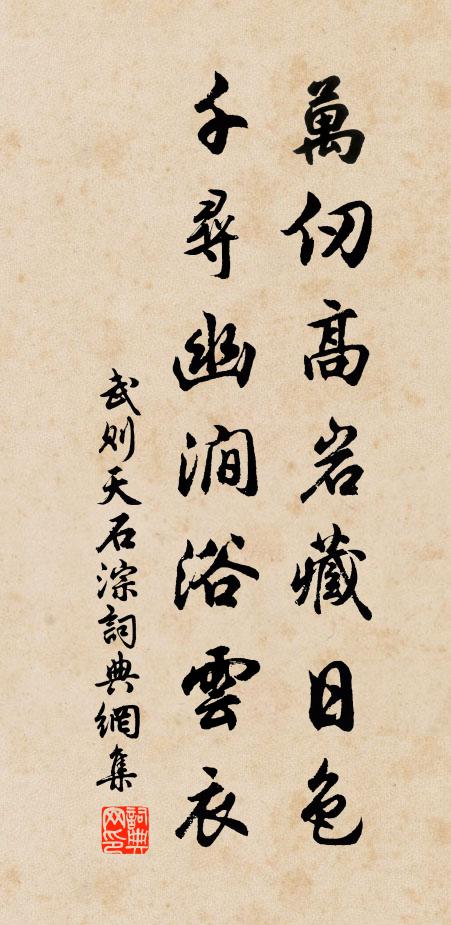 萬仞高岩藏日色
千尋幽澗浴雲衣
武則天石淙詞典網集
詞典网印